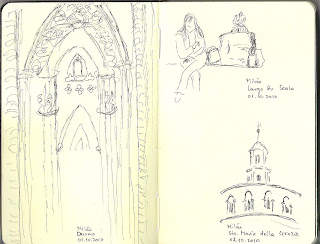 Milão
Duomo
01.10.2010
Milão
Largo La Scala
01.10.2010
Milão
Sta. Maria delle Grazie
02.10.2010